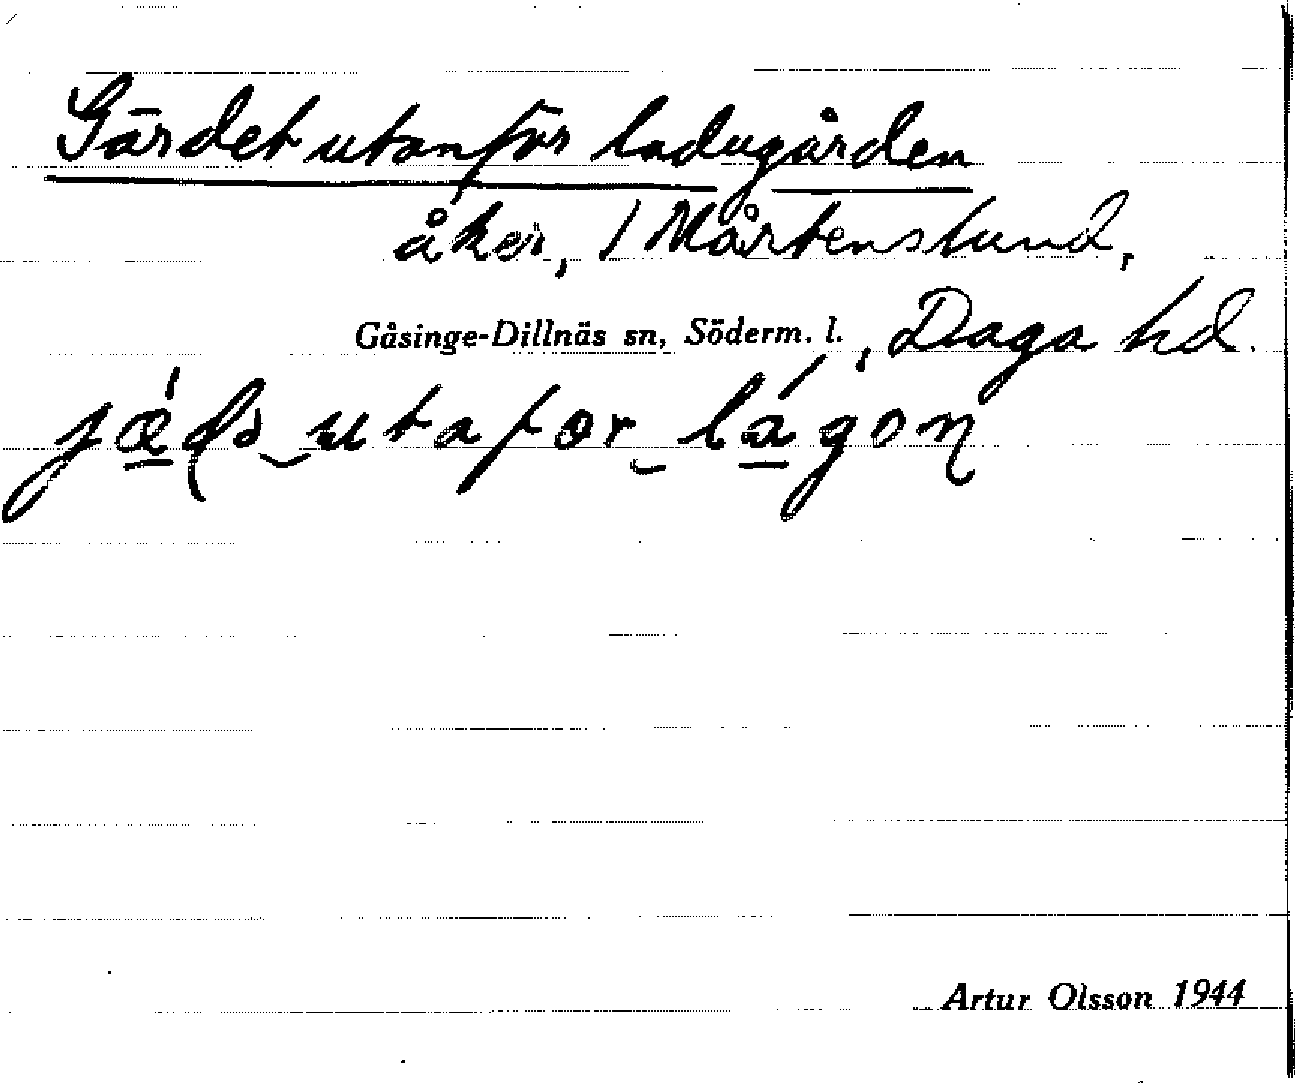 Gärdet utanför ladugården
åker, 1 Mårtenslund,
Gåsinge-Dillnäs sn, Söderm. l., Daga hd.
jǽɖə utafɵr lágɔn
Artur Olsson 1944